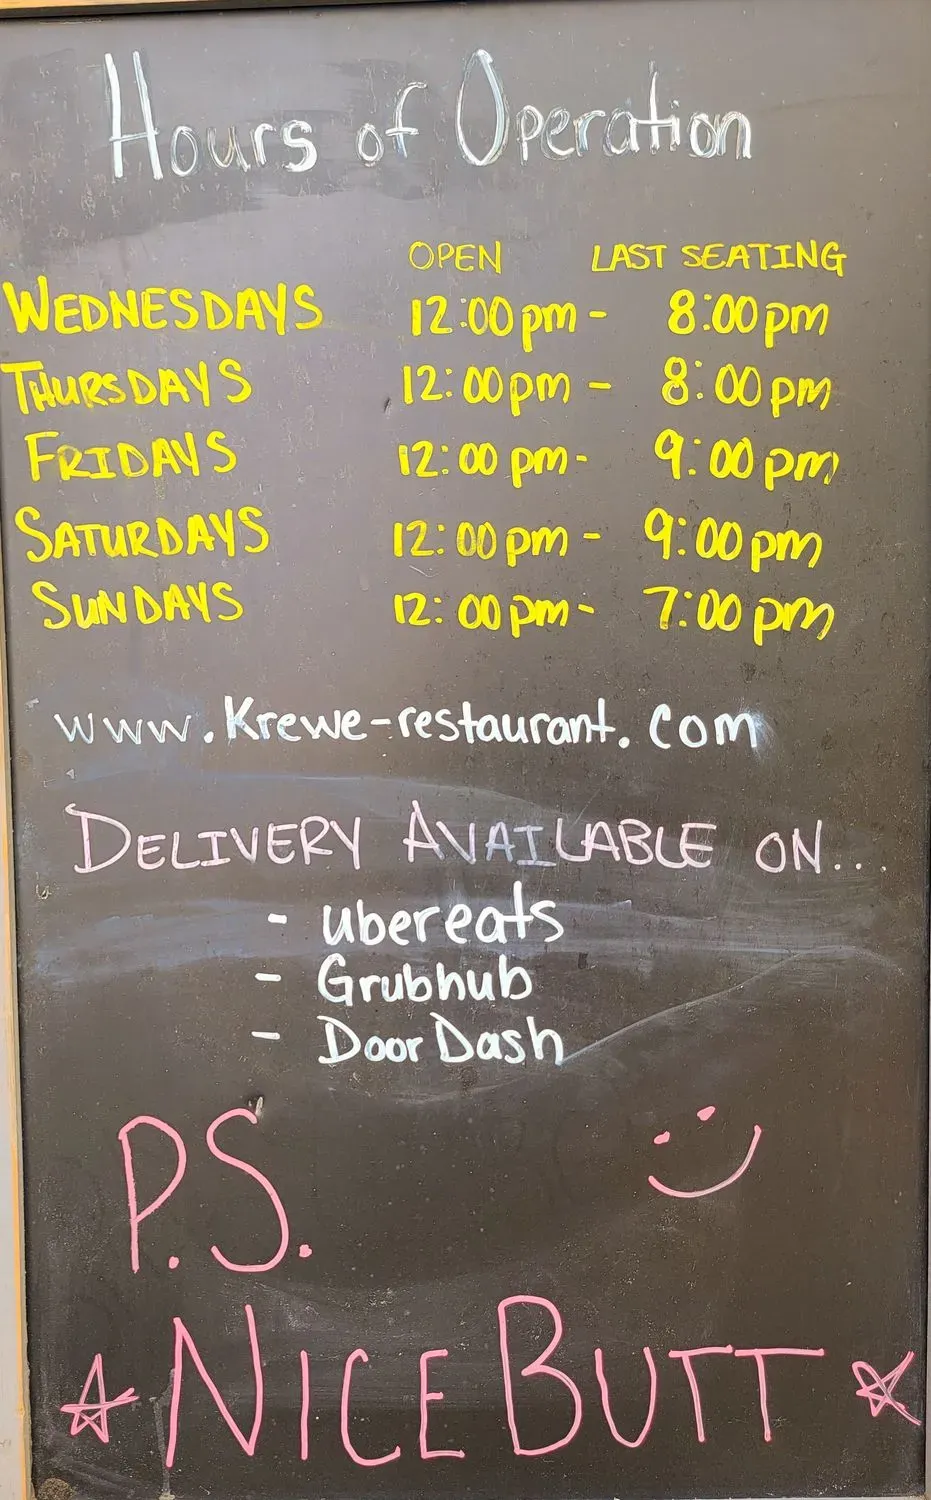 Hours of Operation
OPEN LAST SEATING
WEDNESDAYS 12:00pm - 8:00pm
THURSDAYS 12:00pm - 8:00pm
FRIDAYS 12:00pm - 9:00pm
SATURDAYS 12:00pm - 9:00pm
SUNDAYS 12:00pm - 7:00pm
www.Krewe-restaurant.com
DELIVERY AVAILABLE ON...
- ubereats
- Grubhub
- DoorDash
P.S.
NICE BUTT